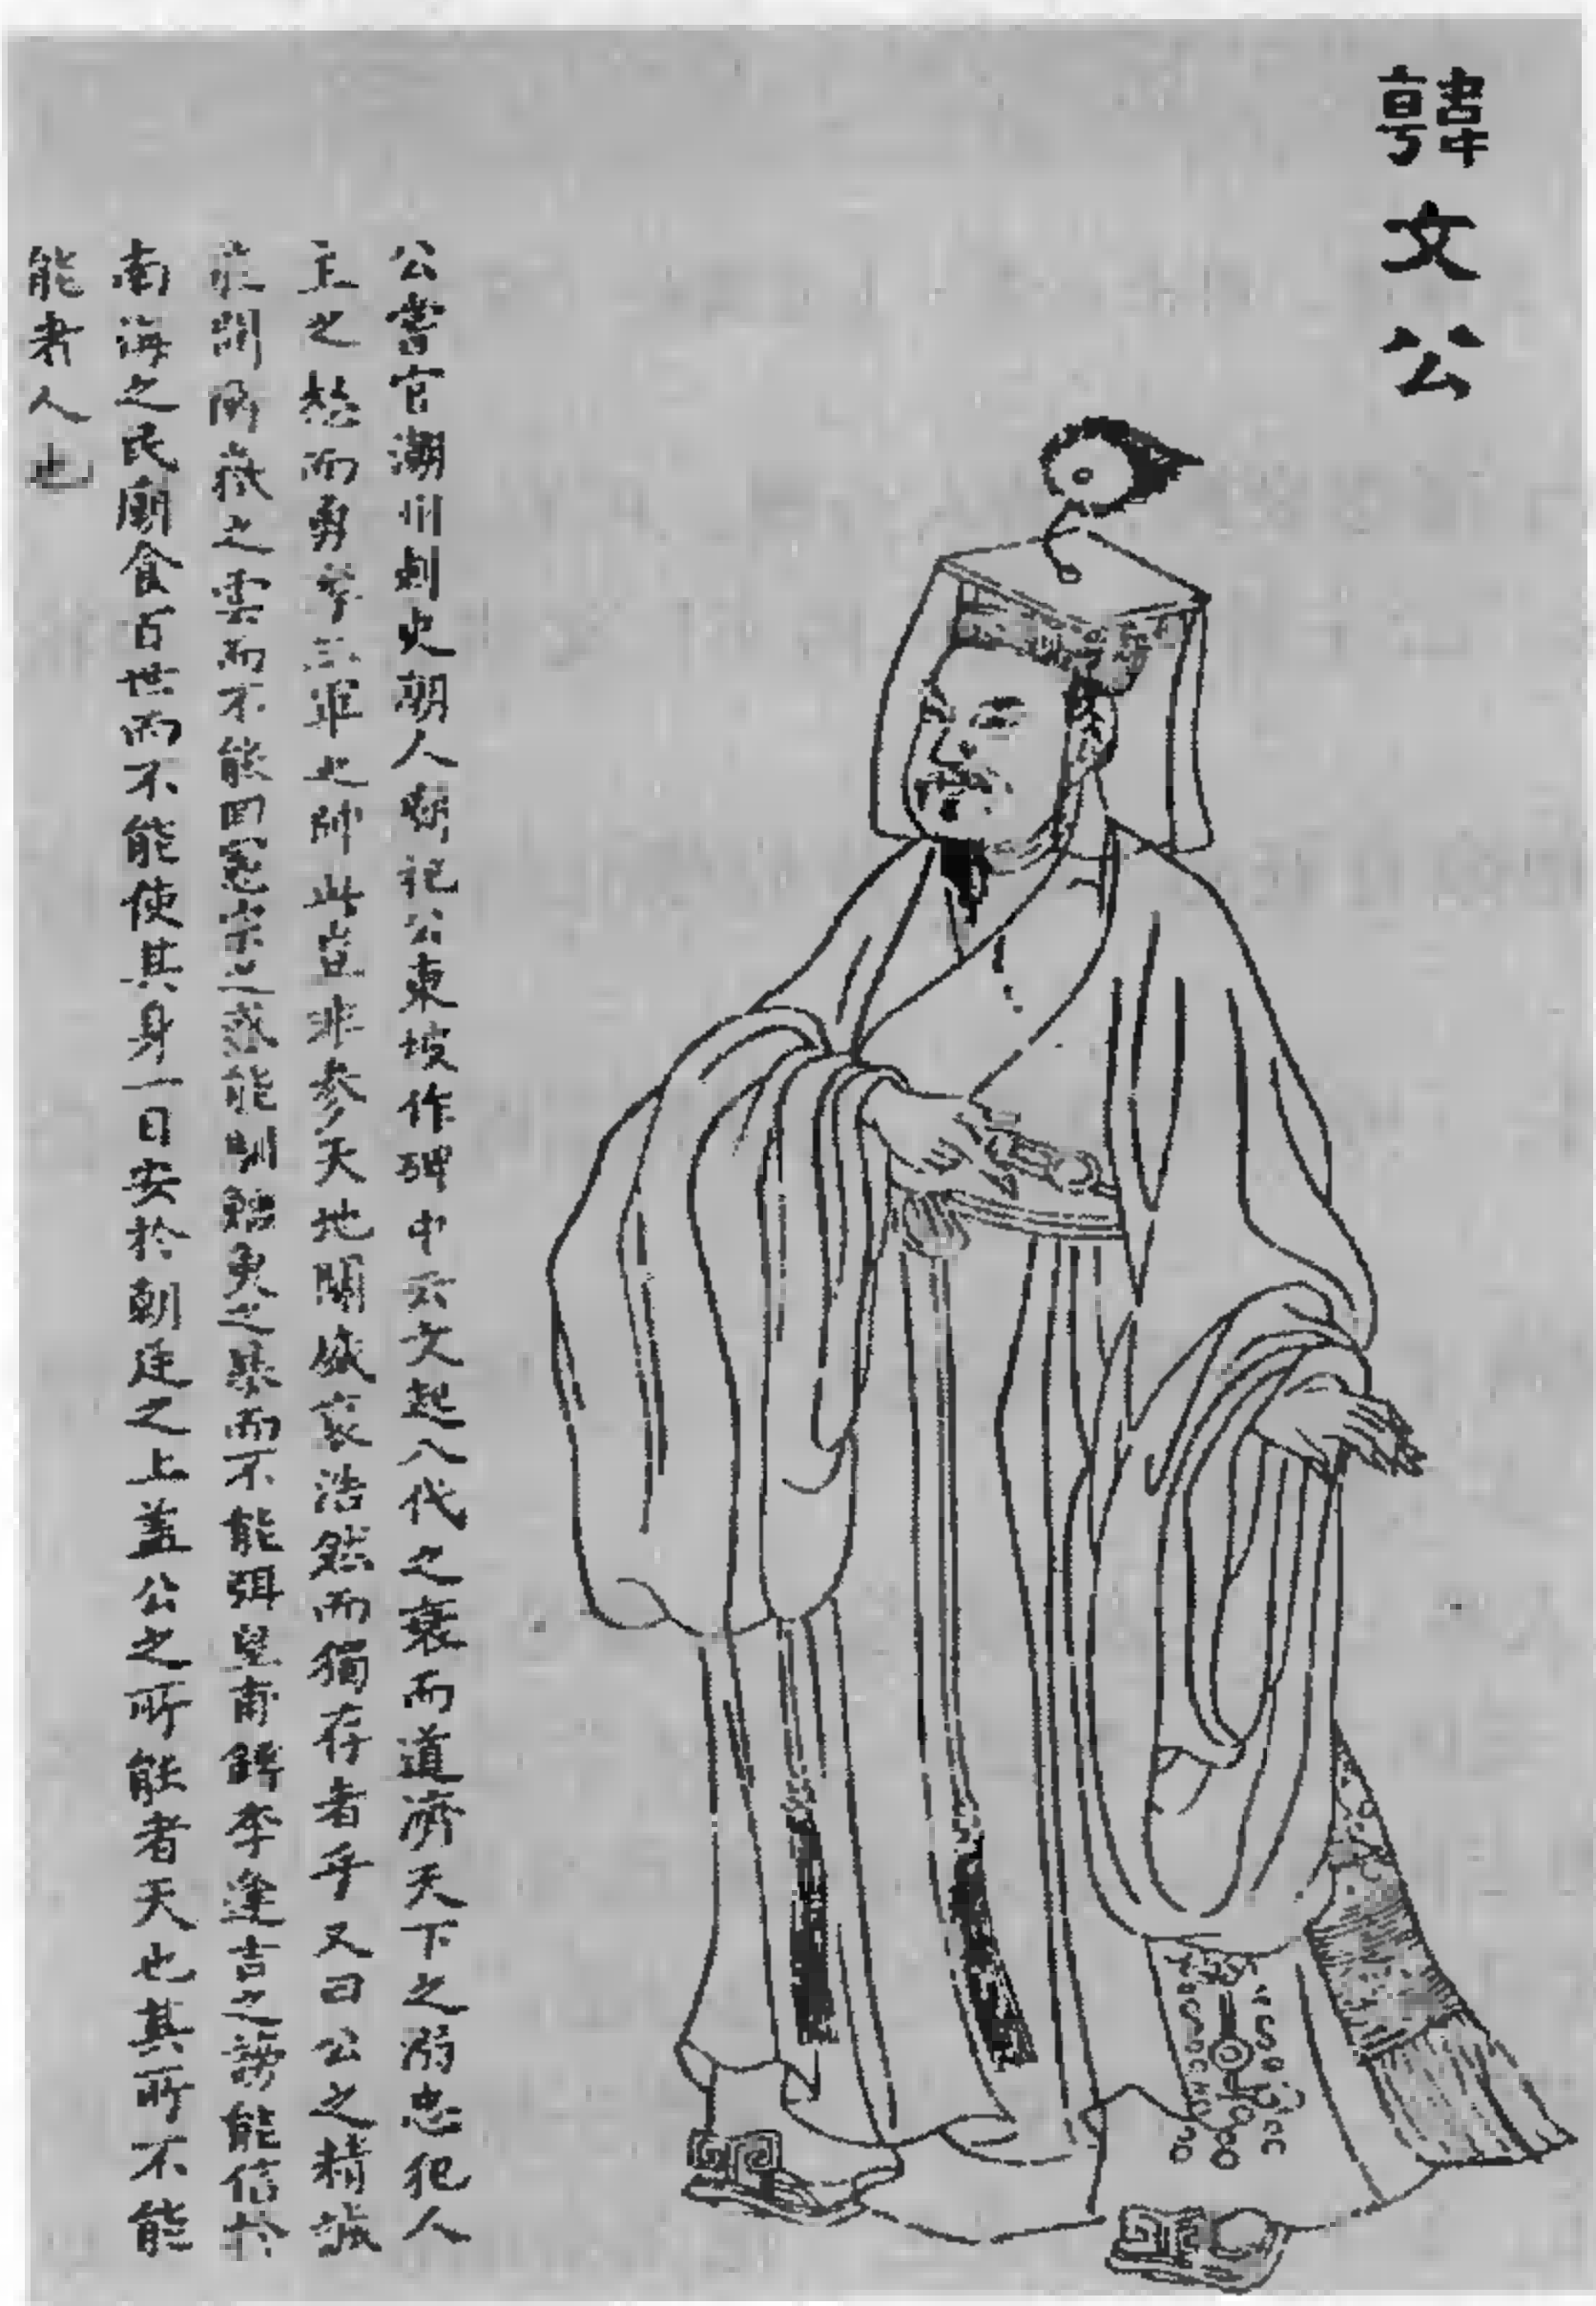 韓文公
公嘗官潮州刺史朝人廟祀公東坡作碑中云文起八代之衰而道濟天下之溺忠犯人
主之怒而勇奪三軍之帥此豈非參天地關盛衰浩然而獨存者乎又曰公之精誠
能開衡嶽之雲而不能回憲宗之惑能馴鱷魚之暴而不能弭皇甫鎛李逢吉之謗能信於
南海之民廟食百世而不能使其身一日安於朝廷之上蓋公之所能者天也其所不能
能者人也